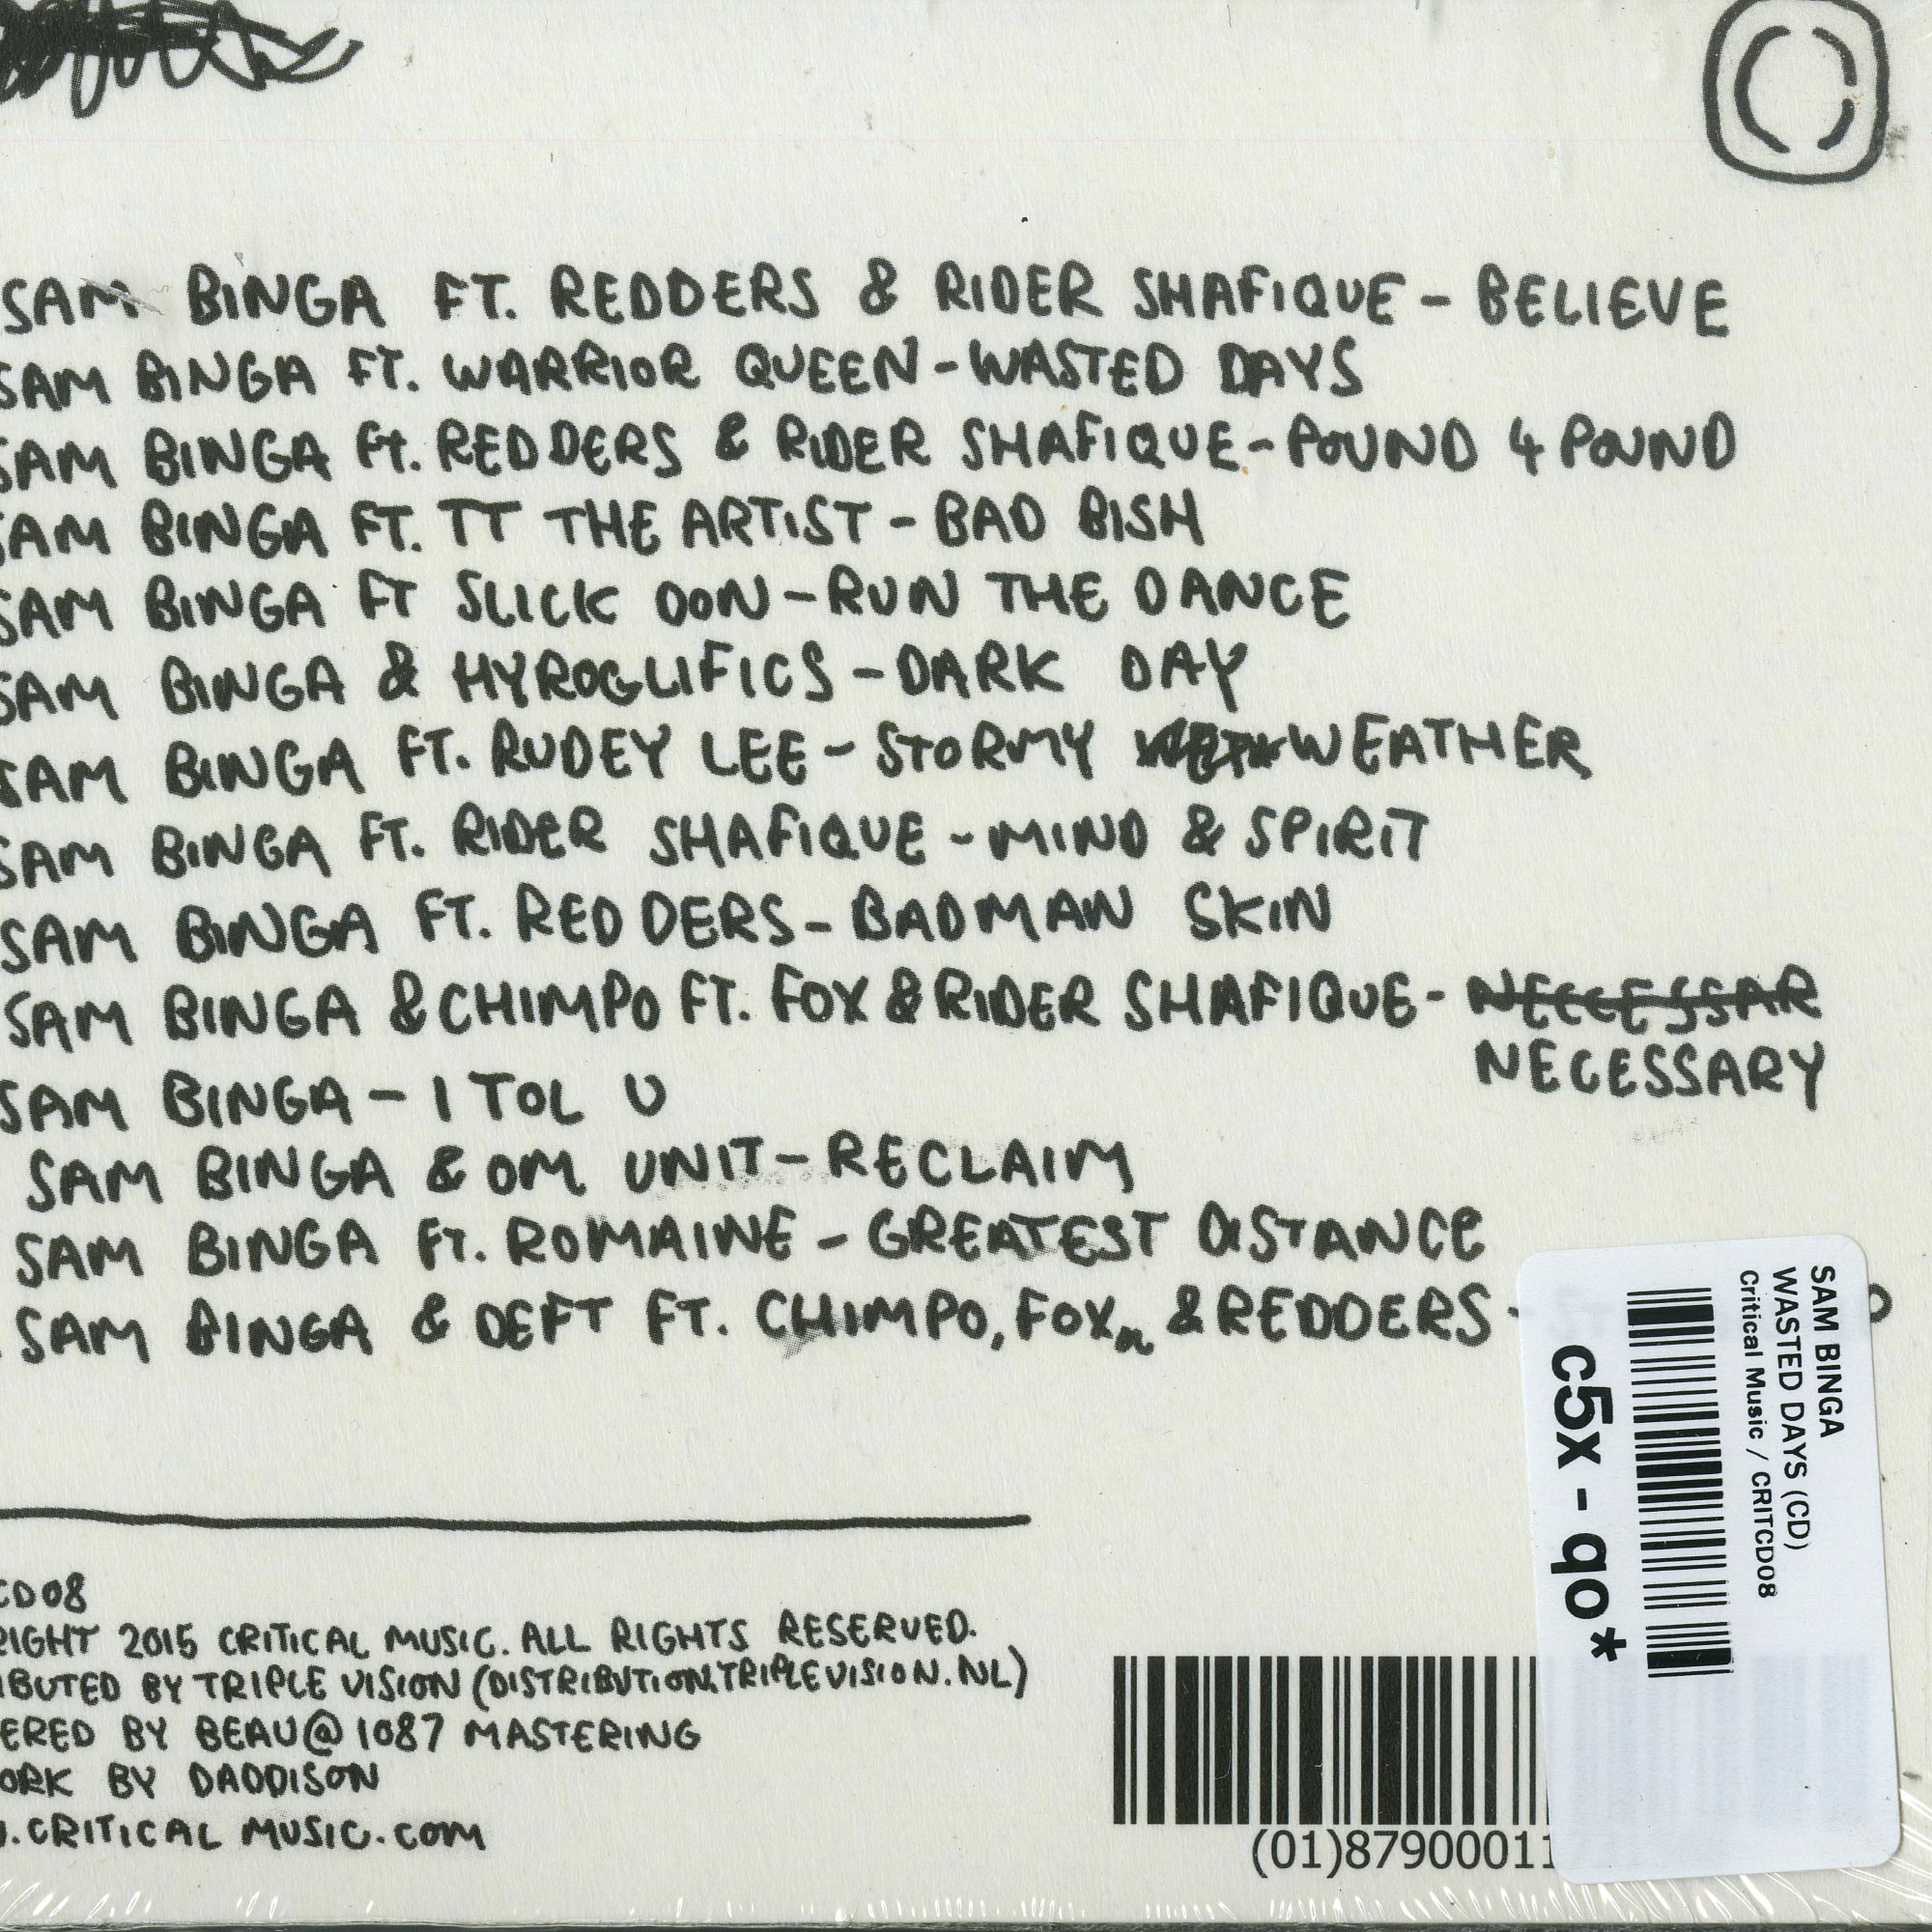 SAM BINGA FT. REDDERS & RIDER SHAFIQUE - BELIEVE
SAM BINGA FT. WARRIOR QUEEN - WASTED DAYS
SAM BINGA Ft. REDDERS & RIDER SHAFIQUE - POUND 4 POUND
SAM BINGA FT. TT THE ARTIST - BAD BISH
SAM BINGA FT SLICK DON - RUN THE DANCE
SAM BINGA & HYROGLIFICS - DARK DAY
SAM BINGA FT. RUDEY LEE - STORMY WEATHER
SAM BINGA FT. RIDER SHAFIQUE - MIND & SPIRIT
SAM BINGA FT. REDDERS - BADMAN SKIN
SAM BINGA & CHIMPO FT. FOX & RIDER SHAFIQUE - NECCESSAR
NECESSARY
SAM BINGA - I TOL U
SAM BINGA & OM UNIT - RECLAIM
SAM BINGA FT. ROMAINE - GREATEST DISTANCE
SAM BINGA & DEFT FT. CHIMPO, FOX, & REDDERS -
CD08
RIGHT 2015 CRITICAL MUSIC. ALL RIGHTS RESERVED.
IBUTED BY TRIPLE VISION (DISTRIBUTION.TRIPLEVISION.NL)
ERED BY BEAU@1087 MASTERING
ORK BY DADDISON
.CRITICAL MUSIC.COM
(01)8790001
SAM BINGA
WASTED DAYS (CD)
Critical Music / CRITCD08
c5x - qo*